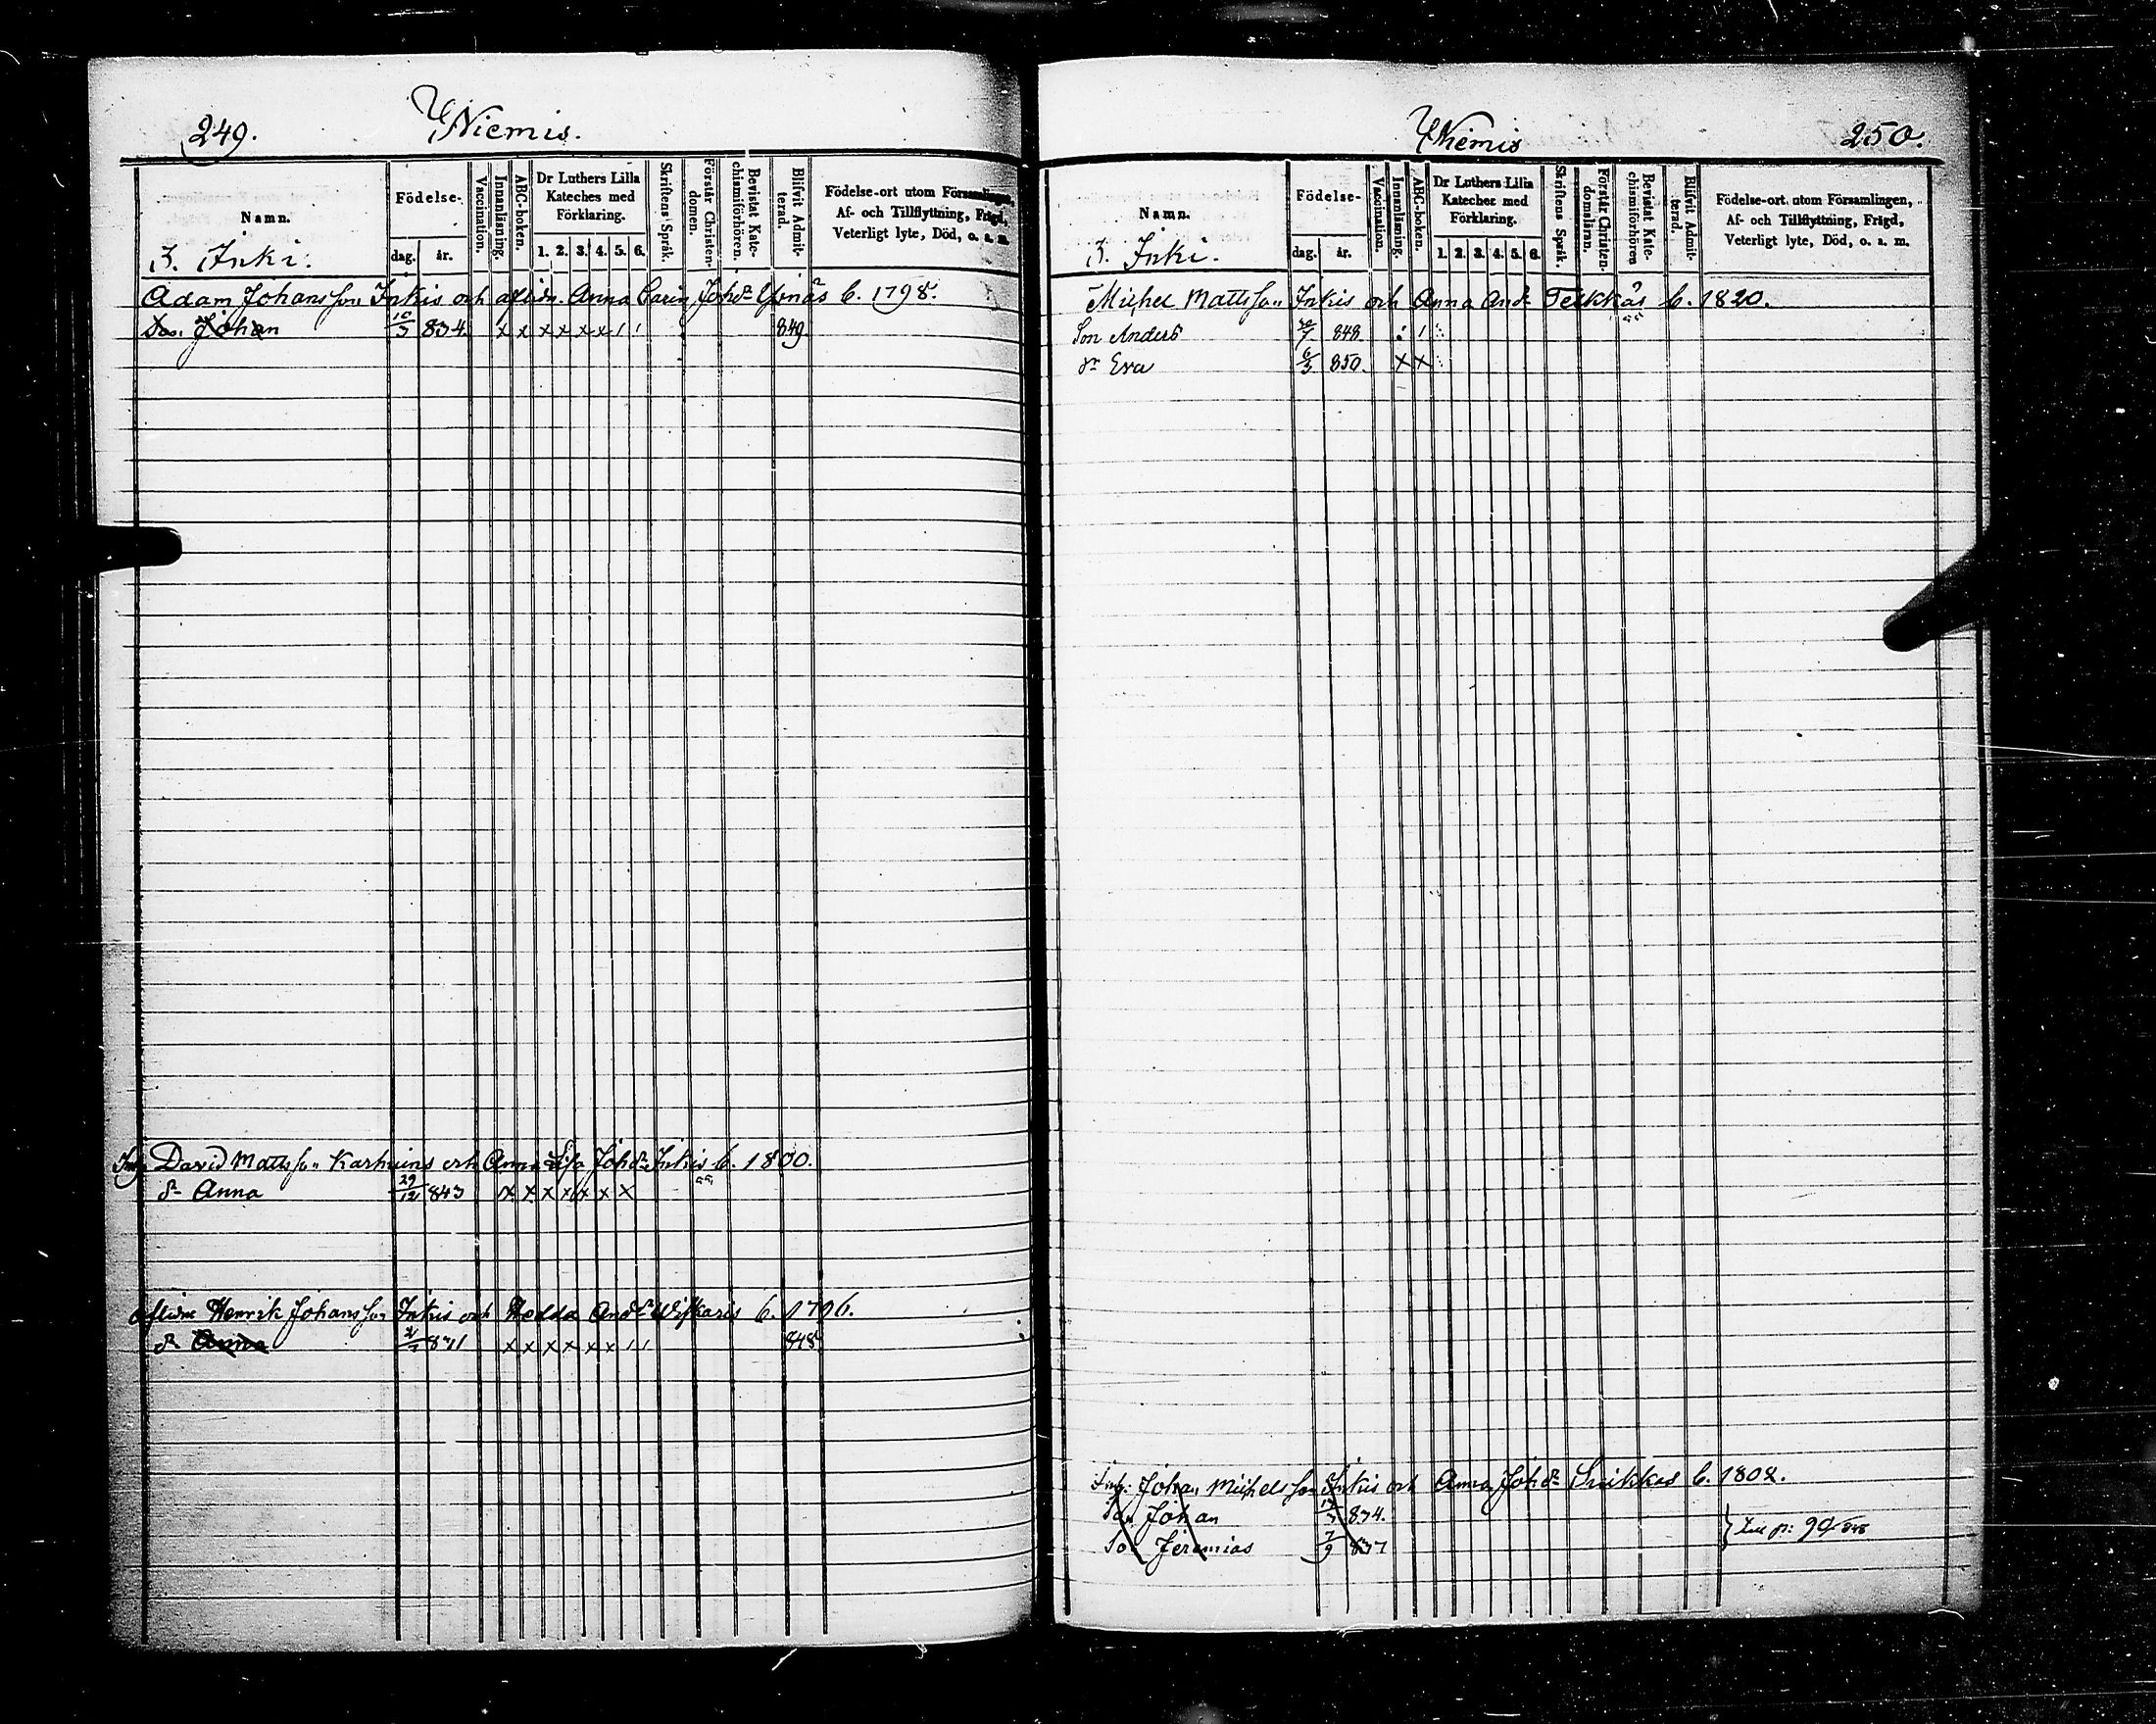 249. YNiemis.
Namn.
3. Inki.
Födelse-
dag. år.
Vaccination.
Innanläsning.
ABC-boken.
Dr Luthers Lilla Kateches med Förklaring.
1. 2. 3. 4. 5. 6.
Skriftens Språk.
Förstår Christendomen.
Bevistat Katechismiförhören.
Blifvit Admitterad.
Födelse-ort utom Församlingen,
Af- och Tillflyttning, Frägd,
Veterligt lyte, Död, o. s. m.
Adam Johansson Inkis och aflidn. Anna Carin Johdr Yrnäs b. 1798.
Son Johan 10/3 834. x x x x x x 1 1 849
Inh. David Mattsson Karhuins och Anna Lisa Johdr Inkis b. 1800.
dr Anna 29/12 843 x x x x x x x
aflidne Henrik Johansson Inkis och Hedda Anddr Wiskaris b. 1796.
dr Anna 831 x x x x x x 1 1 848
YNiemis 250.
Namn.
3. Inki.
Födelse-
dag. år.
Vaccination.
Innanläsning.
ABC-boken.
Dr Luthers Lilla Kateches med Förklaring.
1. 2. 3. 4. 5. 6.
Skriftens Språk.
Förstår Christendomsläran.
Bevistat Katechismiförhören
Blifvit Admitterad.
Födelse-ort utom Församlingen,
Af- och Tillflyttning, Frägd,
Veterligt lyte, Död, o. s. m.
Michel Mattsson Inkis och Anna And. Teikkås b. 1820.
Son Anders 848
dr Eva 6/3 850. x x
Inh: Johan Michelsson Inkis och Anna Johdr Suikkas b. 1808.
Son Johan 834.
Son Jeremias 7/9 837
} till p: 90/848